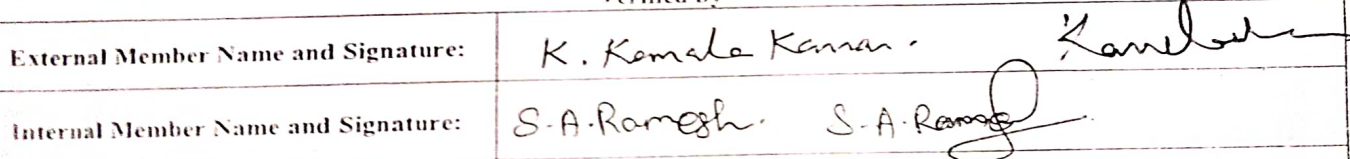 External Member Name and Signature: K. Kamala Kannan.
Internal Member Name and Signature: S.A.Ramesh. S.A.Ramesh